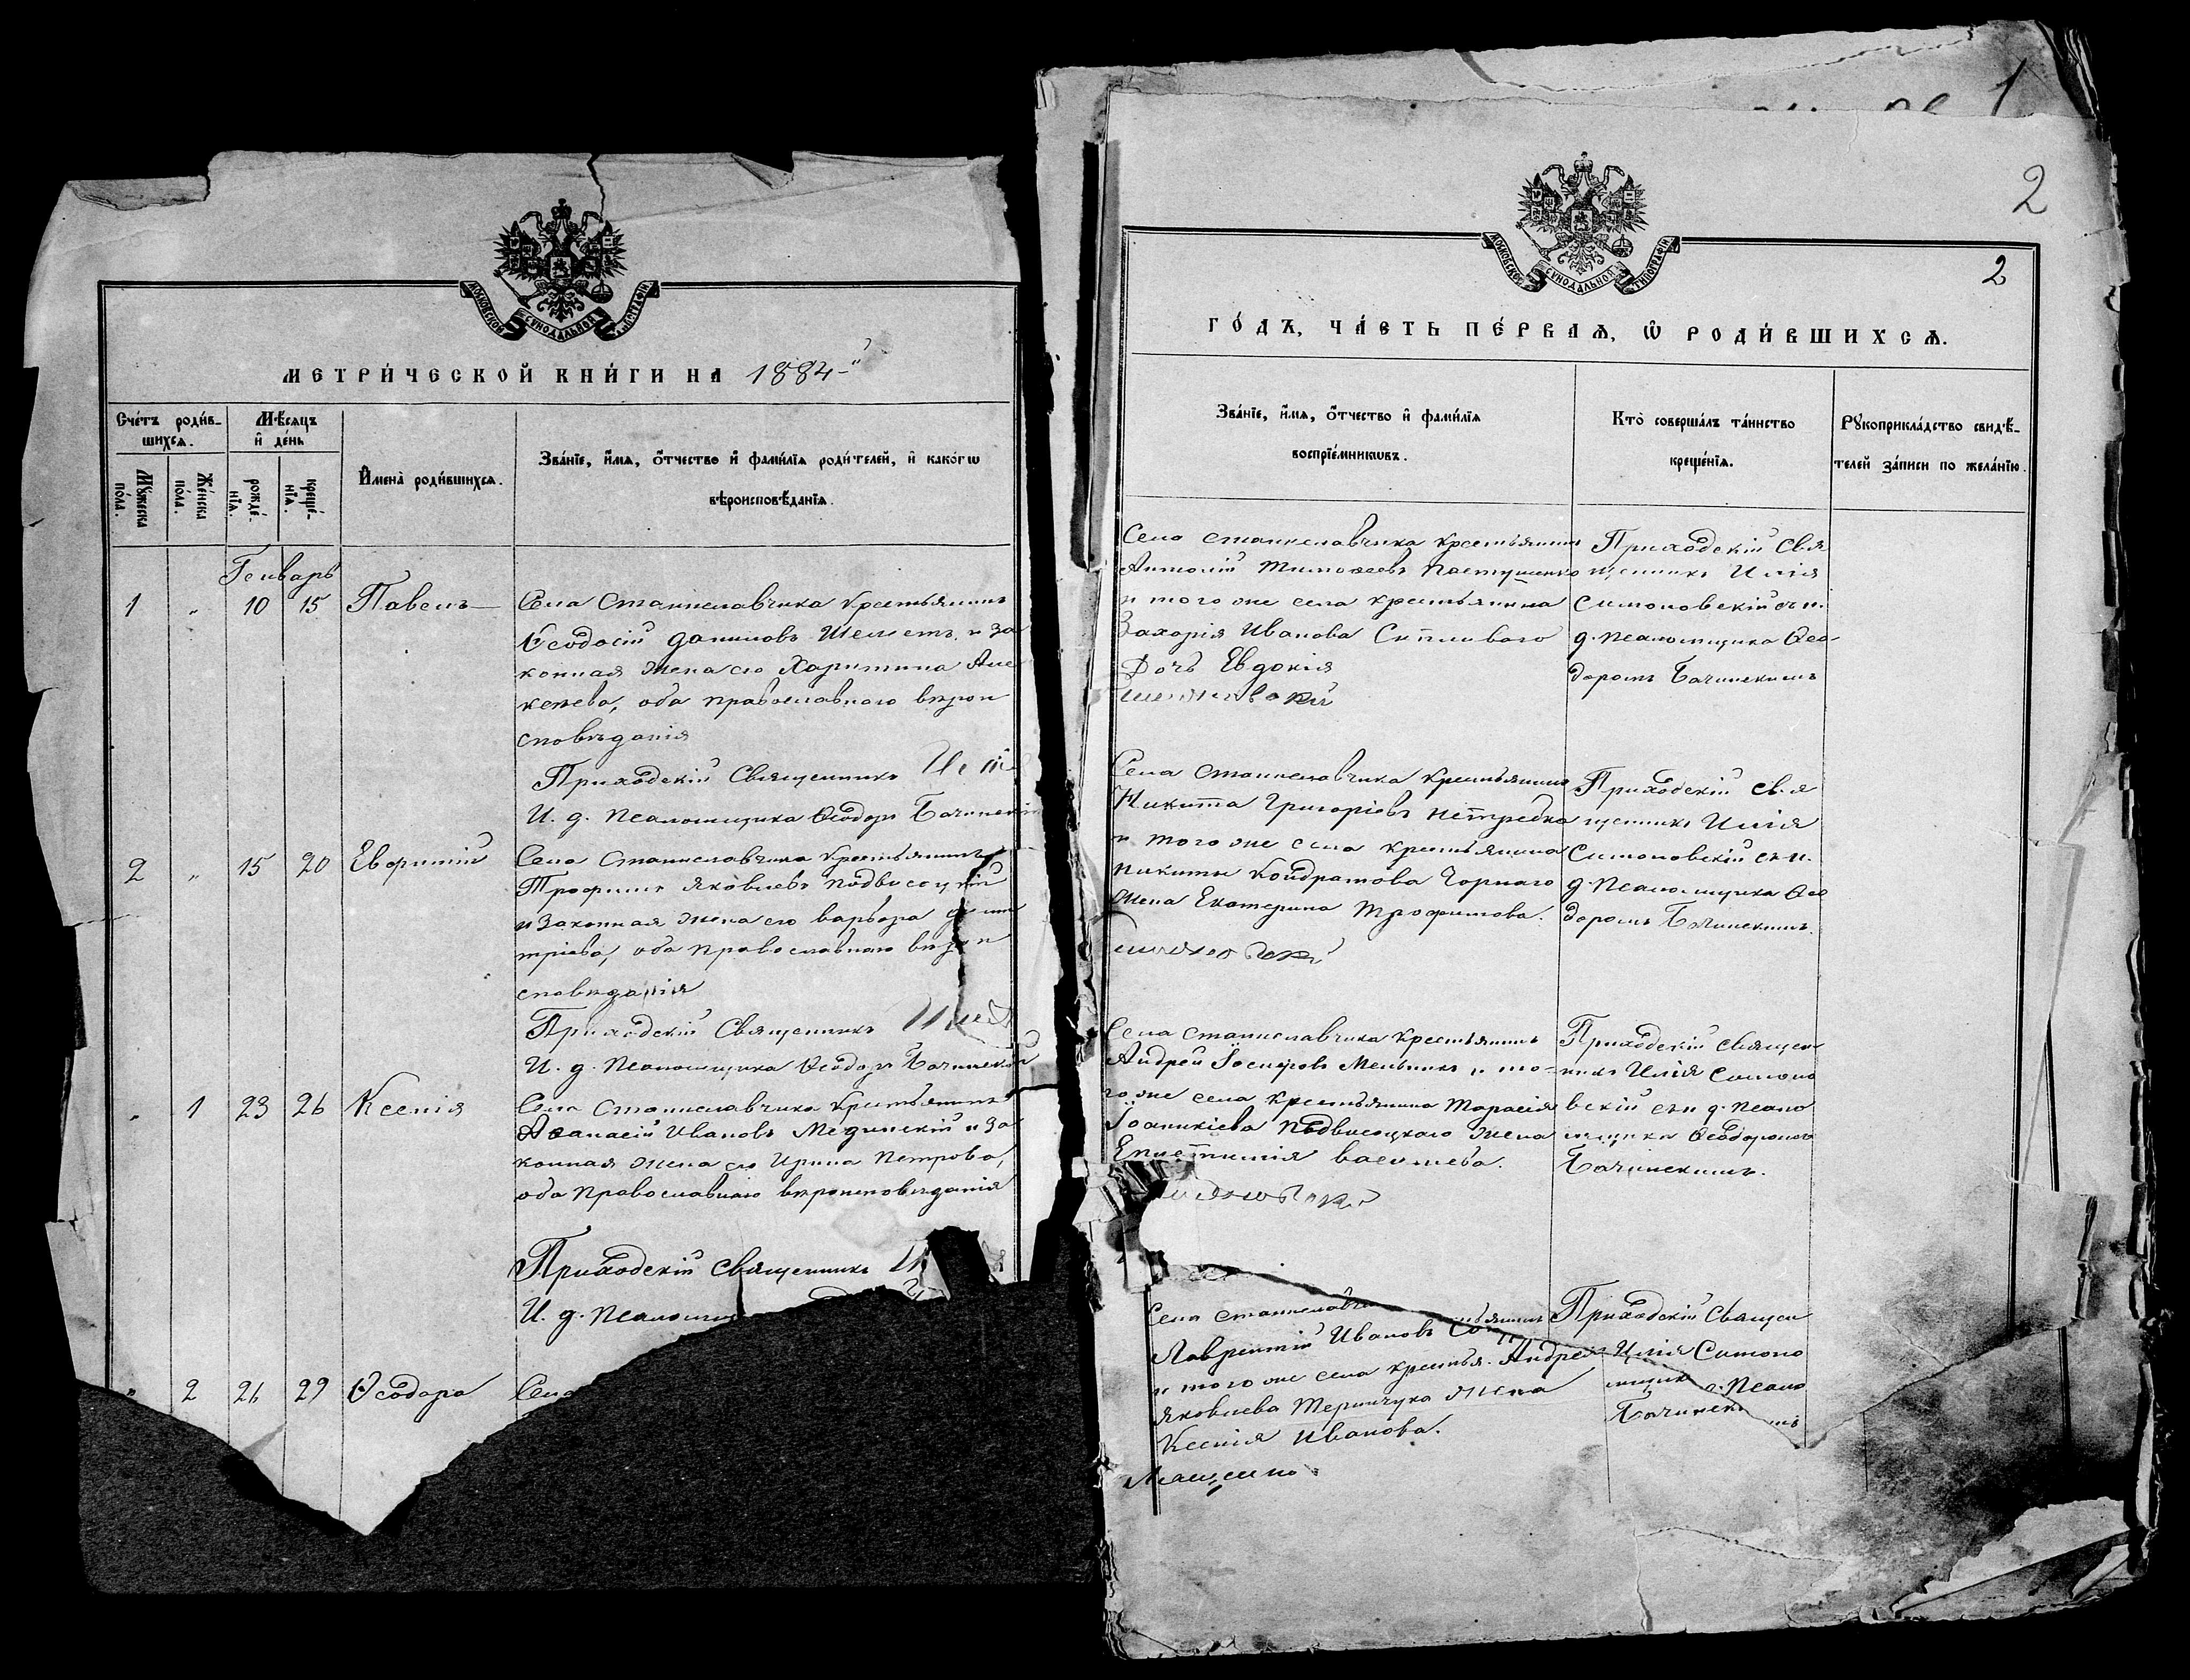 МОСКОВСКОЙ СѴНОДАЛЬНОЙ ТИПОГРАФІИ
МЕТРИ́ЧЕСКОЙ КНИ́ГИ НА 1884-й
Сче́тъ роди́в-
шихсѧ.
Мѣ́сѧцъ
и҆ де́нь
Мꙋ́жеска
по́ла.
Же́нска
по́ла.
рожде́-
нїѧ.
креще́-
нїѧ.
И҆мена̀ роди́вшихсѧ.
Зва́нїе, и҆́мѧ, ѻ҆́тчество и҆ фами́лїѧ роди́телей, и҆ како́гѡ
вѣроисповѣ́данїѧ.
Генварь
1 " 10 15 Павелъ
Села Станиславчика крестьянинъ
Ѳеодосій Даниловъ Шелестъ и за
конная жена его Харитина Але
ксѣева, оба православнаго вѣрои
сповѣданія
Приходскій Священникъ
И. д. Псаломщика Ѳеодоръ Бачинскій
2 " 15 20 Евфимій
Села Станиславчика крестьянинъ
Трофимъ Яковлевъ Подвысоцкій
и законная жена его Варвара Дими
тріева, оба православнаго вѣрои
сповѣданія
Приходскій Священникъ Илія
И. д. Псаломщика Ѳеодоръ Бачинскій
" 1 23 26 Ксенія
Села Станиславчика крестьянинъ
Аѳанасій Ивановъ Мединскій и за
конная жена его Ирина Петрова,
оба православнаго вѣроисповѣданія
Приходскій Священникъ
И. д. Псаломщ
" 2 26 29 Ѳеодора
Села
1
2
МОСКОВСКОЙ СѴНОДАЛЬНОЙ ТИПОГРАФІИ
2
ГО́ДЪ, ЧА́СТЬ ПЕ́РВАѦ, Ѡ҆ РОДИ́ВШИХСѦ.
Зва́нїе, и҆́мѧ, ѻ҆́тчество и҆ фами́лїѧ
воспрїе́мникѡвъ.
Кто̀ соверша́лъ та́инство
креще́нїѧ.
Рꙋкоприкла́дство свидѣ́-
телей за́писи по жела́нїю.
Села Станиславчика крестьянинъ
Антоній Тимоѳеевъ Пастушенко
и того же села крестьянина
Захарія Иванова
Дочь Евдокія
Приходскій Свя
щенникъ Илія
Симоновскій съ и.
д. псаломщика Ѳео-
доромъ Бачинскимъ
Села Станиславчика крестьянинъ
Никита Григоріевъ Нетребка
и того же села крестьянина
Никиты Кондратова Чорнаго
жена Екатерина Трофимова.
Приходскій Свя
щенникъ Илія
Симоновскій съ и.
д. Псаломщика Ѳео
доромъ Бачинскимъ.
Села Станиславчика крестьянинъ
Андрей Іосифовъ Мельникъ и то-
го же села крестьянина Тарасія
Іоанникіева Подвысоцкаго жена
Епистимія Васильева.
Приходскій Священ
никъ Илія Симоно
вскій съ и д. Псало
мщика Ѳеодоромъ
Бачинскимъ.
Села Станиславчи
Лаврентій Ивановъ
и того же села крестья. Андрея
Яковлева Терничука жена
Ксенія Иванова.
Приходскій Священ
Илія Симоно
Псало
Бачински мъ